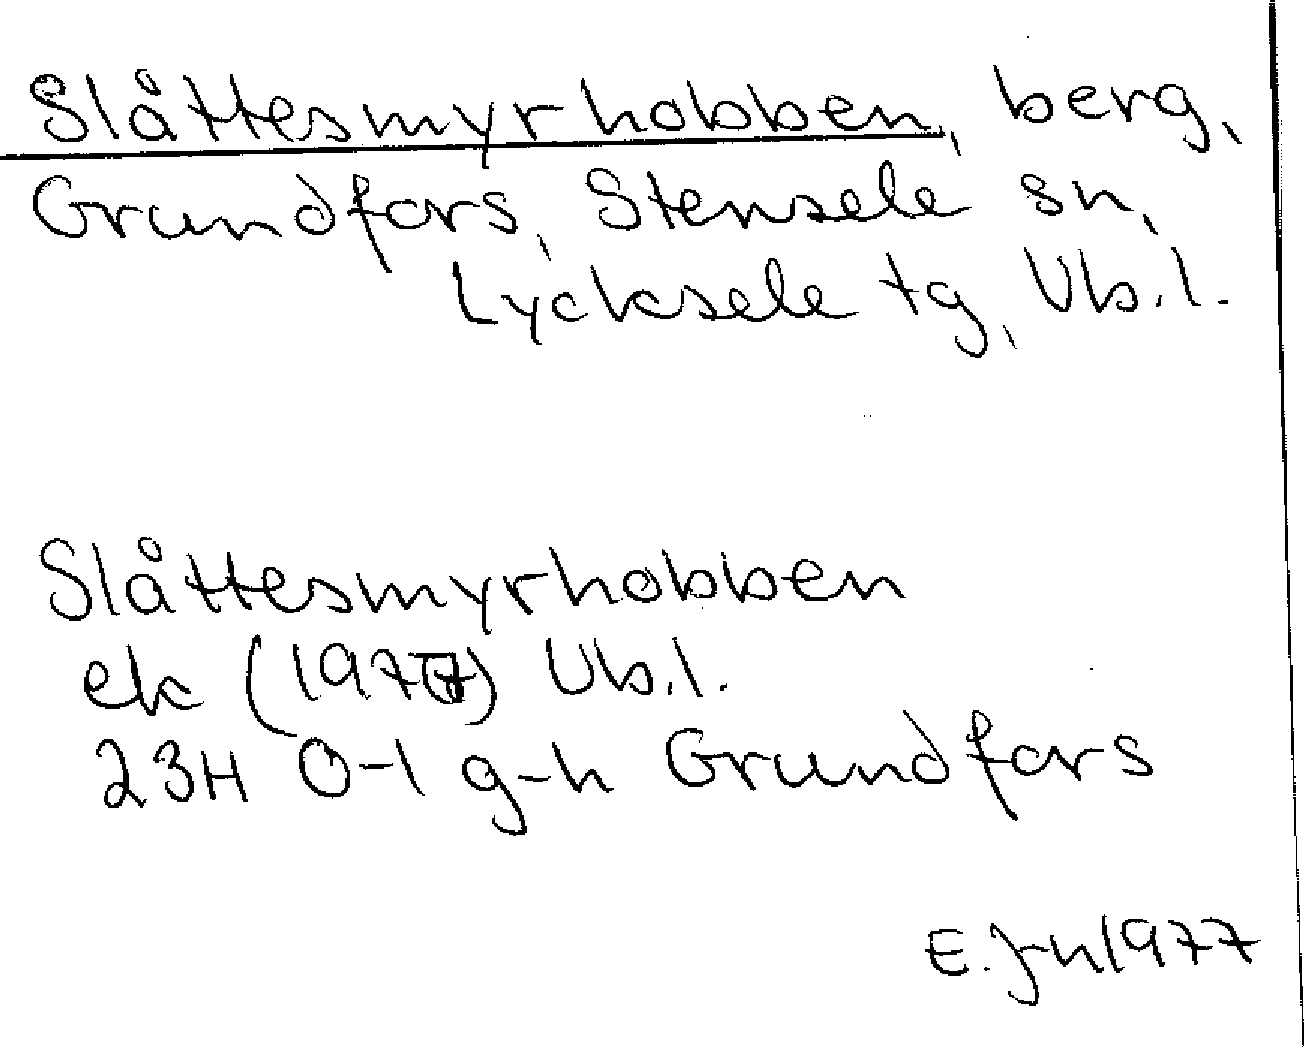 Slåttesmyrhobben, berg,
Grundfors, Stensele sn,
Lycksele tg, Vb.l.
Slåttesmyrhobben
ek (1977) Vb.l.
23H 0-1 g-h Grundfors
E. Jn 1977